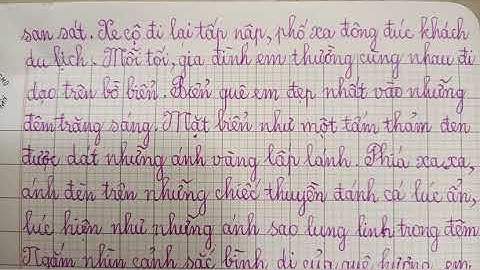 san sát. Xe cộ đi lại tấp nập, phố xa đông đúc khách
du lịch. Mỗi tối, gia đình em thường cùng nhau đi
dạo trên bờ biển. Biển quê em đẹp nhất vào những
đêm trăng sáng. Mặt biển như một tấm thảm đen
được dát những ánh vàng lấp lánh. Phía xa xa,
ánh đèn trên những chiếc thuyền đánh cá lúc ẩn,
lúc hiện như những ánh sao lung linh trong đêm
Ngắm nhìn cảnh sắc bình dị của quê hương em,